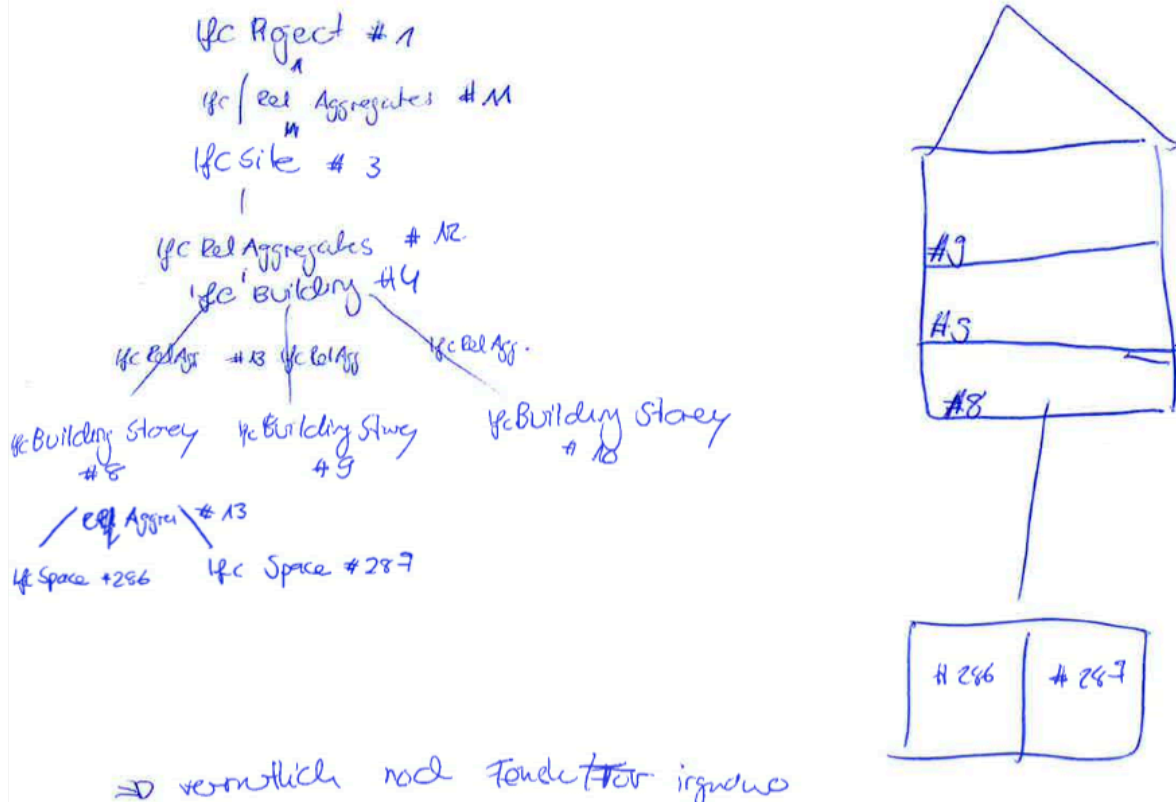 Ifc Project # 1
1
Ifc Rel Aggregates # 11
Ifc Site # 3
Ifc Rel Aggregates # 12
Ifc Building #4
Ifc Rel Agg # 13 Ifc Rel Agg Ifc Rel Agg.
Ifc Building Storey # 8
Ifc Building Storey # 9
Ifc Building Storey # 10
Aggre # 13
Ifc Space #286 Ifc Space #287
#9
#9
#8
# 286 # 287
⇒ vermutlich noch irgendwo